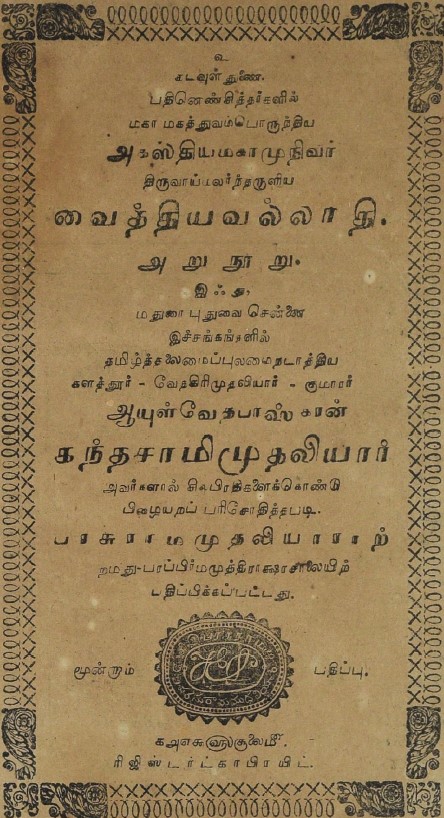 உ
கடவுள் துணை.
பதினெண்சித்தர்களில்
மகா மகத்துவம்பொருந்திய
அகஸ்தியமகாமுநிவர்
திருவாய்மலர்ந்தருளிய
வைத்தியவல்லாதி.
அறுநூறு.
இஃது,
மதுரை புதுவை சென்னை
இச்சங்கங்களில்
தமிழ்த்தலைமைப்புலமைநடாத்திய
களத்தூர் - வேதகிரிமுதலியார் - குமாரர்
ஆயுள்வேதபாஸ்கரன்
கந்தசாமிமுதலியார்
அவர்களால் சிலபிரதிகளைக்கொண்டு
பிழையறப் பரிசோதித்தபடி.
பரசுராமமுதலியாராற்
றமது-பரப்பிரமமுத்திராக்ஷரசாலையிற்
பதிப்பிக்கப்பட்டது.
மூன்றாம் பதிப்பு.
ரிஜிஸ்டர்ட்காபிரயிட்.